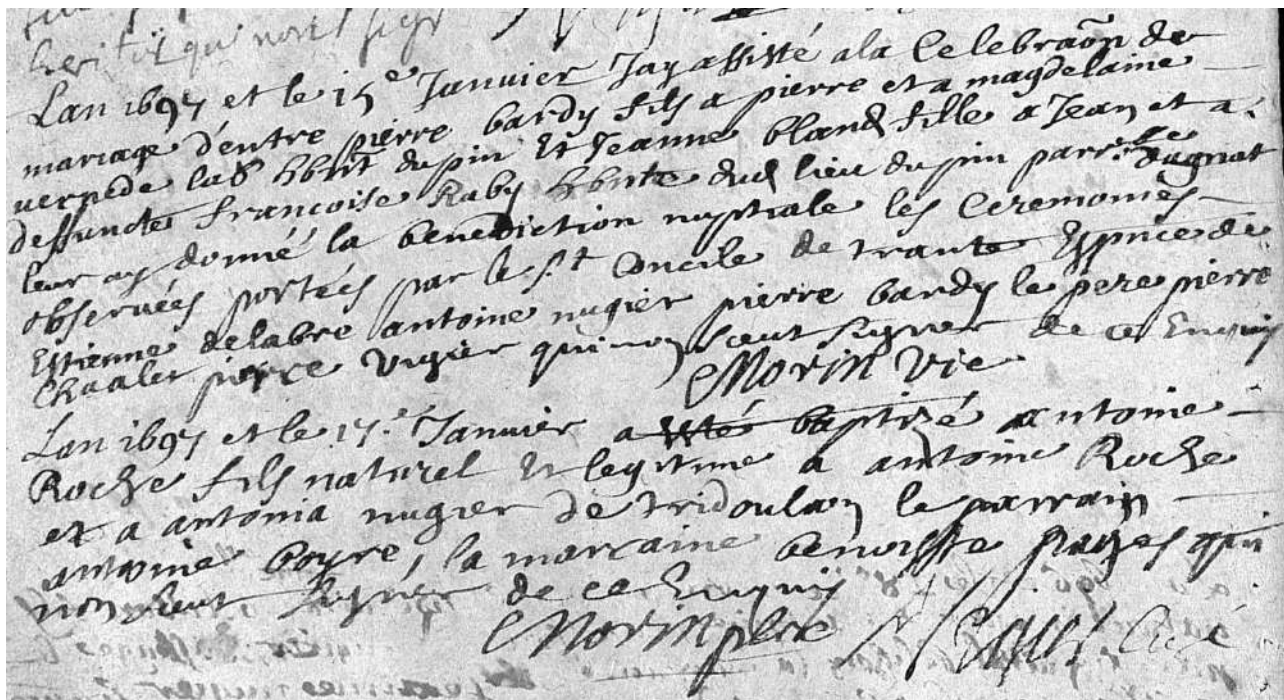 qui nont sign
Lan 1697 et le 15e Januier Jay assisté ala Celebraôn de
mariage d'entre pierre bardy fils a pierre et a magdelaine
vernede hbnt dupin Et Jeanne bland fille a Jean et a
deffuncte francoise Raby hbnte dud lieu dupin parr dugnat
leur ay donné la benediction nuptiale les Ceremonies
observées portées par le st Concile de trante Espnce de
Estienne delabre antoine nugier pierre bardy le pere pierre
Chaalet pierre vugier qui non sceut signer de ce Enquis
Morin vic
Lan 1697 et le 17e Januier a esté baptizé antoine
Roche fils naturel Et legitime a antoine Roche
et a antonia nugier de tridoulon le parrain
antoine boyre, la marraine benoiste pages qui
non sceut signer de ce Enquis
Morin pbre Curé